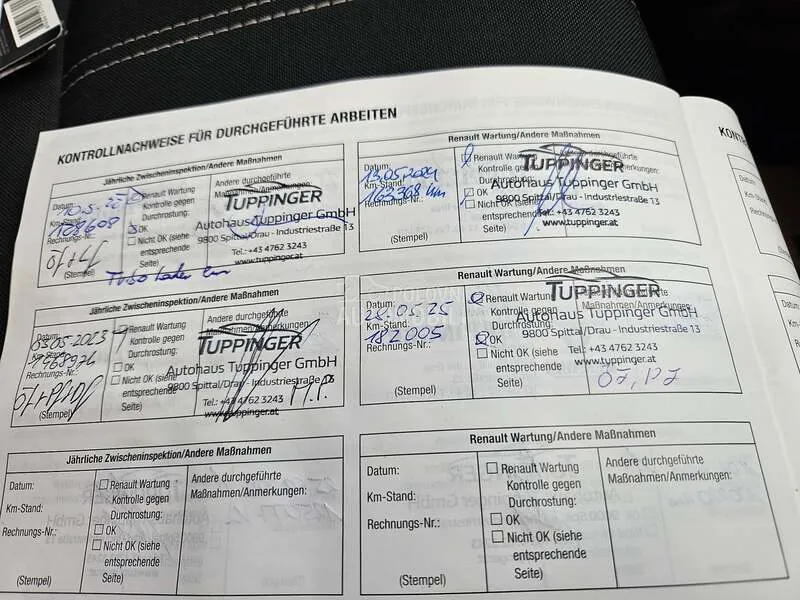 KONTROLLNACHWEISE FÜR DURCHGEFÜHRTE ARBEITEN
Jährliche Zwischeninspektion/Andere Maßnahmen
Datum:
Renault Wartung
Kontrolle gegen
Durchrostung:
OK
Nicht OK (siehe
entsprechende
Seite)
Andere durchgeführte
Maßnahmen/Anmerkungen:
108608
Rechnungs-Nr.:
(Stempel)
TUPPINGER
Autohaus Tuppinger GmbH
9800 Spittal/Drau - Industriestraße 13
Tel.: +43 4762 3243
www.tuppinger.at
Renault Wartung/Andere Maßnahmen
Datum:
13.05.2024
Km-Stand:
163368 km
Rechnungs-Nr.:
(Stempel)
Renault Wartung
Kontrolle gegen
Durchrostung:
OK
Nicht OK (siehe
entsprechende
Seite)
TUPPINGER
Autohaus Tuppinger GmbH
9800 Spittal/Drau - Industriestraße 13
Tel.: +43 4762 3243
www.tuppinger.at
Jährliche Zwischeninspektion/Andere Maßnahmen
Datum:
03.05.2023
Rechnungs-Nr.:
(Stempel)
Renault Wartung
Kontrolle gegen
Durchrostung:
OK
Nicht OK (siehe
entsprechende
Seite)
Andere durchgeführte
Maßnahmen/Anmerkungen:
TUPPINGER
Autohaus Tuppinger GmbH
9800 Spittal/Drau - Industriestraße 13
Tel.: +43 4762 3243
www.tuppinger.at
Renault Wartung/Andere Maßnahmen
Datum:
28.05.25
Km-Stand:
182005
Rechnungs-Nr.:
(Stempel)
Renault Wartung
Kontrolle gegen
Durchrostung:
OK
Nicht OK (siehe
entsprechende
Seite)
TUPPINGER
Autohaus Tuppinger GmbH
9800 Spittal/Drau - Industriestraße 13
Tel.: +43 4762 3243
www.tuppinger.at
Jährliche Zwischeninspektion/Andere Maßnahmen
Datum:
Km-Stand:
Rechnungs-Nr.:
(Stempel)
Renault Wartung
Kontrolle gegen
Durchrostung:
OK
Nicht OK (siehe
entsprechende
Seite)
Andere durchgeführte
Maßnahmen/Anmerkungen:
Renault Wartung/Andere Maßnahmen
Datum:
Km-Stand:
Rechnungs-Nr.:
(Stempel)
Renault Wartung
Kontrolle gegen
Durchrostung:
OK
Nicht OK (siehe
entsprechende
Seite)
Andere durchgeführte
Maßnahmen/Anmerkungen: